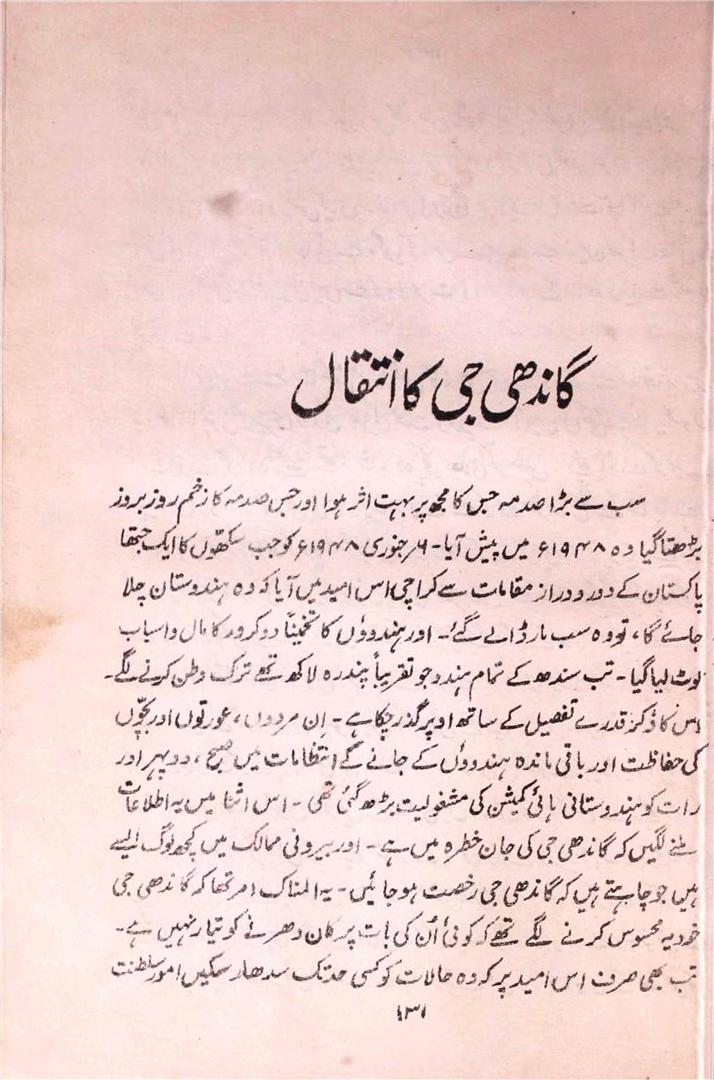 گاندھی جی کا انتقال
سب سے بڑا صدمہ جس کا مجھ پر بہت اثر ہوا اور جس صدمہ کا زخم روز بروز
بڑھتا گیا وہ ۱۹۴۸ء میں پیش آیا۔ ۶ر جنوری ۱۹۴۸ء کو جب سکھوں کا ایک جتھا
پاکستان کے دور و دراز مقامات سے کراچی اس امید میں آیا کہ وہ ہندوستان چلا
جائے گا، تو وہ سب مار ڈالے گئے۔ اور ہندوؤں کا تخمیناً دو کروڑ کا مال و اسباب
لوٹ لیا گیا۔ تب سندھ کے تمام ہندو جو تقریباً پندرہ لاکھ تھے ترک وطن کرنے لگے۔
اس کا ذکر قدرے تفصیل کے ساتھ اوپر گذر چکا ہے۔ اِن مردوں، عورتوں اور بچّوں
کی حفاظت اور باقی ماندہ ہندوؤں کے جانے کے انتظامات میں صبح، دوپہر اور
رات کو ہندوستانی ہائی کمیشن کی مشغولیت بڑھ گئی تھی۔ اس اثنا میں یہ اطلاعات
ملنے لگیں کہ گاندھی جی کی جان خطرہ میں ہے۔ اور بیرونی ممالک میں کچھ لوگ ایسے
ہیں جو چاہتے ہیں کہ گاندھی جی رخصت ہو جائیں۔ یہ المناک امر تھا کہ گاندھی جی
خود یہ محسوس کرنے لگے تھے کہ کوئی اُن کی بات پر کان دھرنے کو تیار نہیں ہے۔
تب بھی صرف اس امید پر کہ وہ حالات کو کسی حد تک سدھار سکیں امور سلطنت
۱۳۱